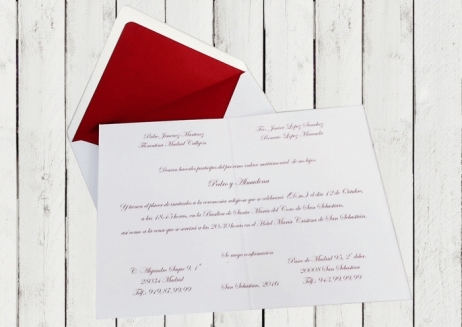 Pedro Jimenez Martinez
Florentina Madrid Callejón
Fco. Javier López Sánchez
Rosario López Manuela
Desean hacerles partícipes del próximo enlace matrimonial de sus hijos
Pedro y Almudena
Y tienen el placer de invitarles a la ceremonia religiosa que se celebrará (D.m.) el día 12 de Octubre,
a las 18:45 horas, en la Basílica de Santa María del Coro de San Sebastián,
así como a la cena que se servirá a las 20:30 horas en el Hotel María Cristina de San Sebastián.
Se ruega confirmación
C. Alejandro Saque 9, 1º
28034 Madrid
Tlf: 919.87.99.99
San Sebastián, 2016
Paseo de Madrid 95, 2º dcha.
20008 San Sebastián
Tlf: 943.99.99.99